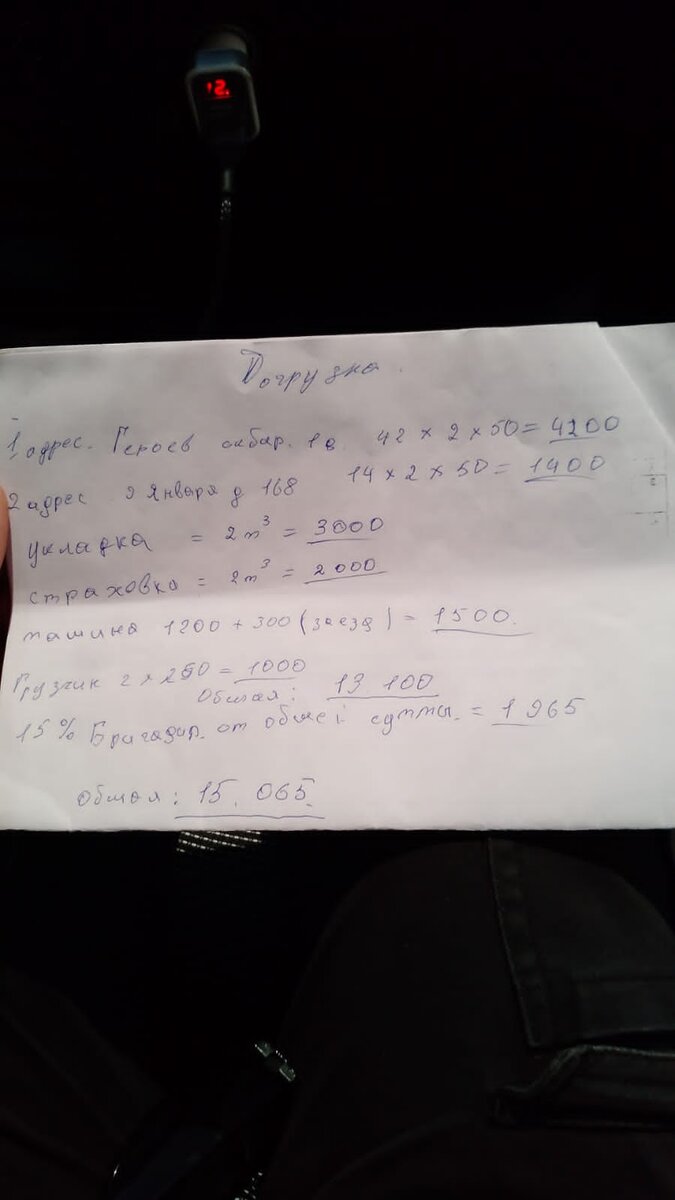 12.
Погрузка.
1 адрес. Героев сибир. 1а 42 × 2 × 50 = 4200
2 адрес 9 Января д 168 14 × 2 × 50 = 1400
укладка = 2m³ = 3000
страховка = 2m³ = 2000
машина 1200 + 300 (заезд) = 1500.
Грузчик 2 × 250 = 1000
Общая: 13 100
15% Бригадир. от общей суммы. = 1 965
общая: 15. 065.